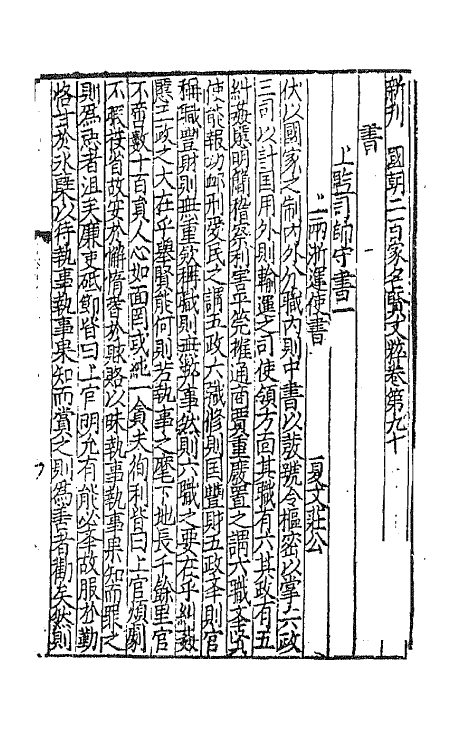 新刊 國朝二百家名賢文粹卷第九十
書
上監司帥守書一
上兩浙運使書 夏文莊公
伏以國家之制內外分職內則中書以發號令樞密以掌六政
三司以計国用外則輸運之司使領方面其職有六其政有五
糾姦慝明簡稽察利害平筦榷通商賈重廢置之謂六職舉賢
使能報功卹刑愛民之謂五政六職修則国豐財五政举則官
稱職豐財則無重歛稱職則無弊事然則六職之要在乎糾姦
慝五政之大在乎舉賢能何則若執事之麾下地長千餘里官
不啻數十百貟人心如面罔或純一貪夫徇利皆曰上官煩劇
不暇按省故安於懈惰奢於賕賂以昧執事執事果知而罪之
則為惡者沮矣廉吏砥節皆曰上官明允有能必举故服於勤
恪甘於氷蘖以待執事執事果知而賞之則為善者勸矣然則